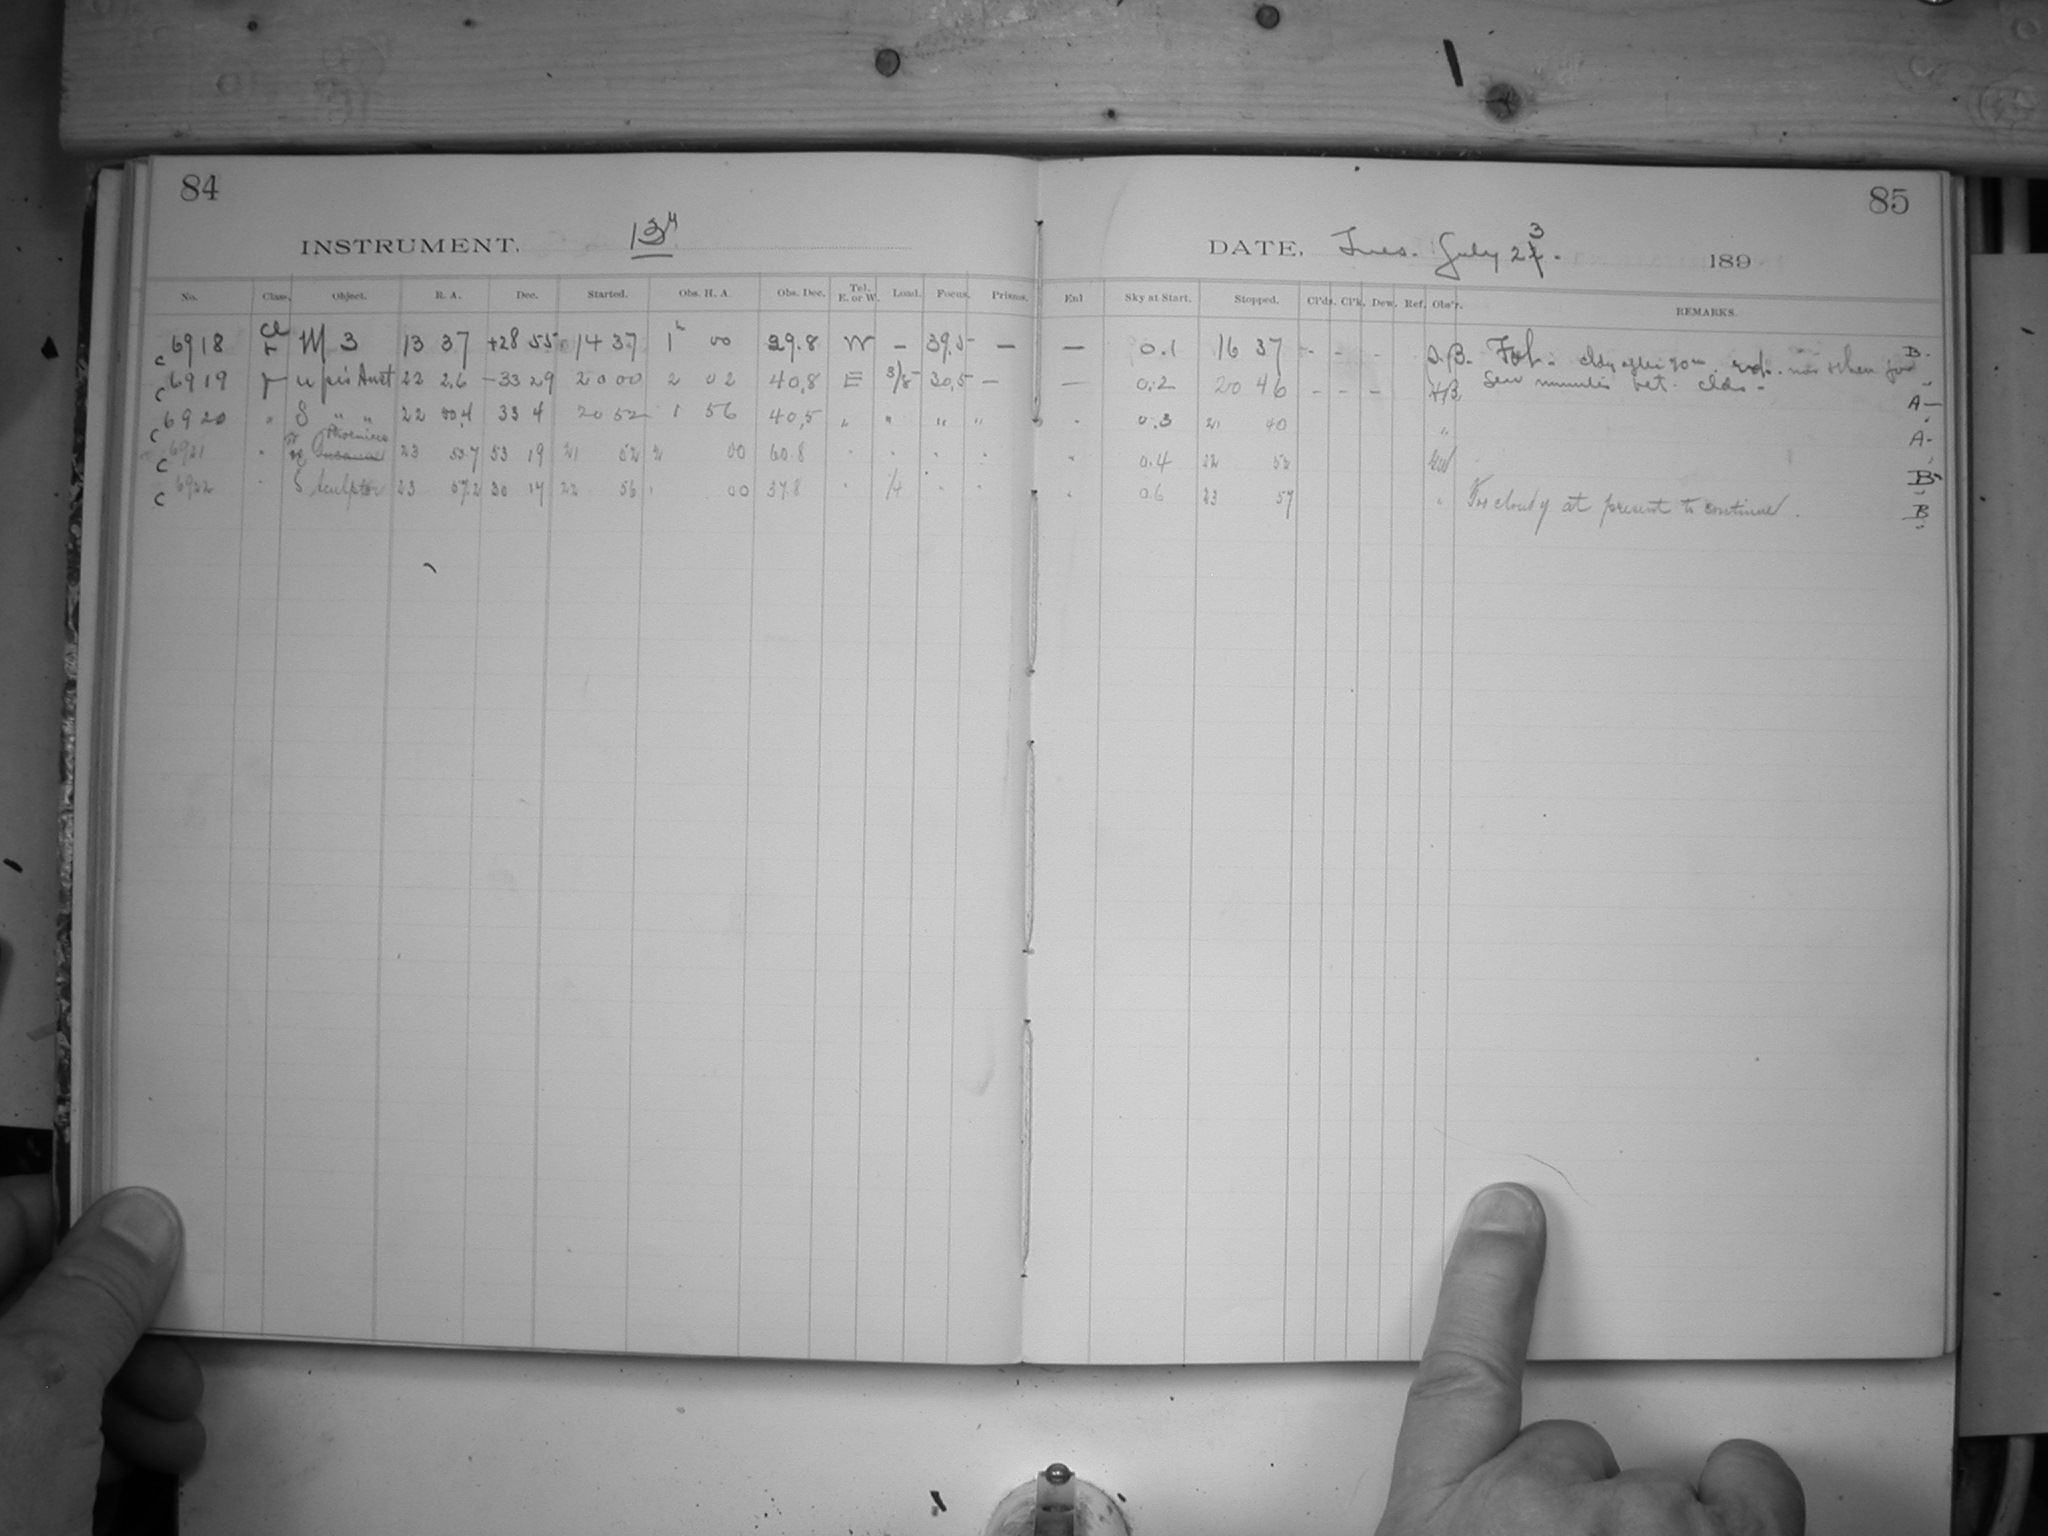 84
85
INSTRUMENT. 13"
DATE, Tues. July 23. 189
No. Class. Object. R. A. Dec. Started. Obs. H. A. Obs. Dec. Tel. E. or W. Load. Focus. Prisms. Enl Sky at Start. Stopped. Cl'ds. Cl'k. Dew. Ref. Obs'r. REMARKS.
c 6918 Cl r M 3 13 37 +28 55 14 37 1h 00 29.8 W – 39.5 – – 0.1 16 37 - - - B.
c 6919 r Pis Aust 22 2,6 –33 29 20 00 2 02 40,8 E 3/8 30,5 – – 0.2 20 46 - - - Sev minutes bet. clds. A–
c 6920 " S " " 22 50,4 33 4 20 52 1 56 40,5 " " " " " 0.3 21 40 " A-
c 6921 " Phoenicis 23 53.7 53 19 21 52 2 00 60.8 " " " " " 0.4 22 52 B
c 6922 " S Sculptor 23 57.2 30 17 22 56 1 00 37.8 " " " " 0.6 23 57 " Too cloudy at present to continue. B